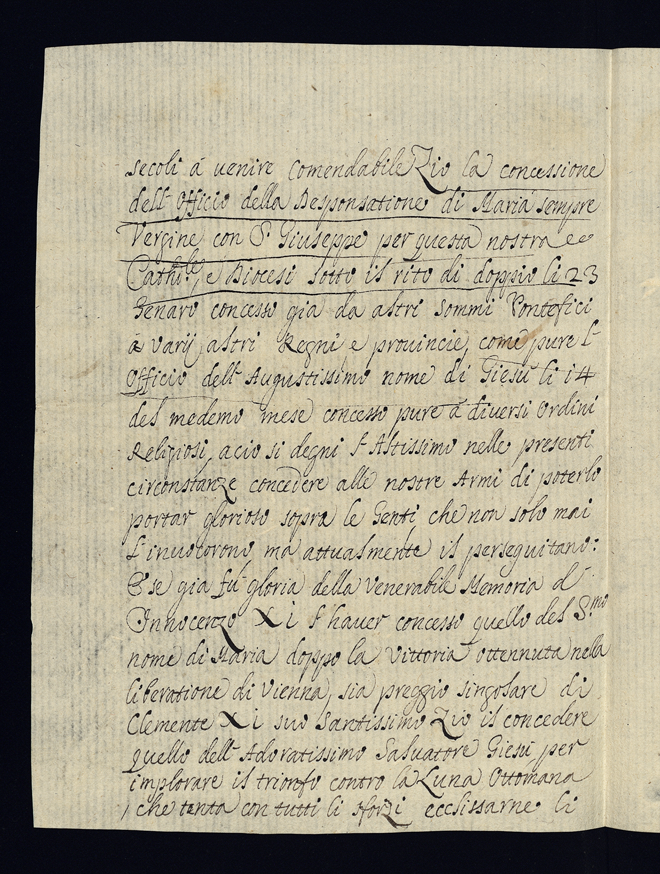 secoli á uenire comendabile Zio la concessione
dell' Officio della Desponsatione di Maria sempre
Vergine con S. Giuseppe per questa nostra
Cath:le, e Diocesi sotto il rito di doppio li 23
Genaro concesso gia da altri sommi Pontefici
á Varij altri Regni e prouincie, come pure l'
Officio dell' Augustissimo nome di Giesù li 14
del medemo mese concesso pure á diuersi Ordini
Religiosi, acio si degni l'Altissimo nelle presenti
circonstanze concedere alle nostre Armi di poterlo
portar glorioso sopra le Genti che non solo mai
l'inuocorono, ma attualmente il perseguitano:
E se gia fù gloria della Venerabile Memoria d'
Innocenzo XI l'hauer concesso quello del S.mo
nome di Maria doppo la Vittoria ottennuta nella
liberatione di Vienna, sia preggio singolare di
Clemente XI suo Santissimo Zio il concedere
quello dell' Adoratissimo Saluatore Giesù per
implorare il trionfo contro la Luna Ottomana
, che tenta con tutti li sforzi ecclissarne li